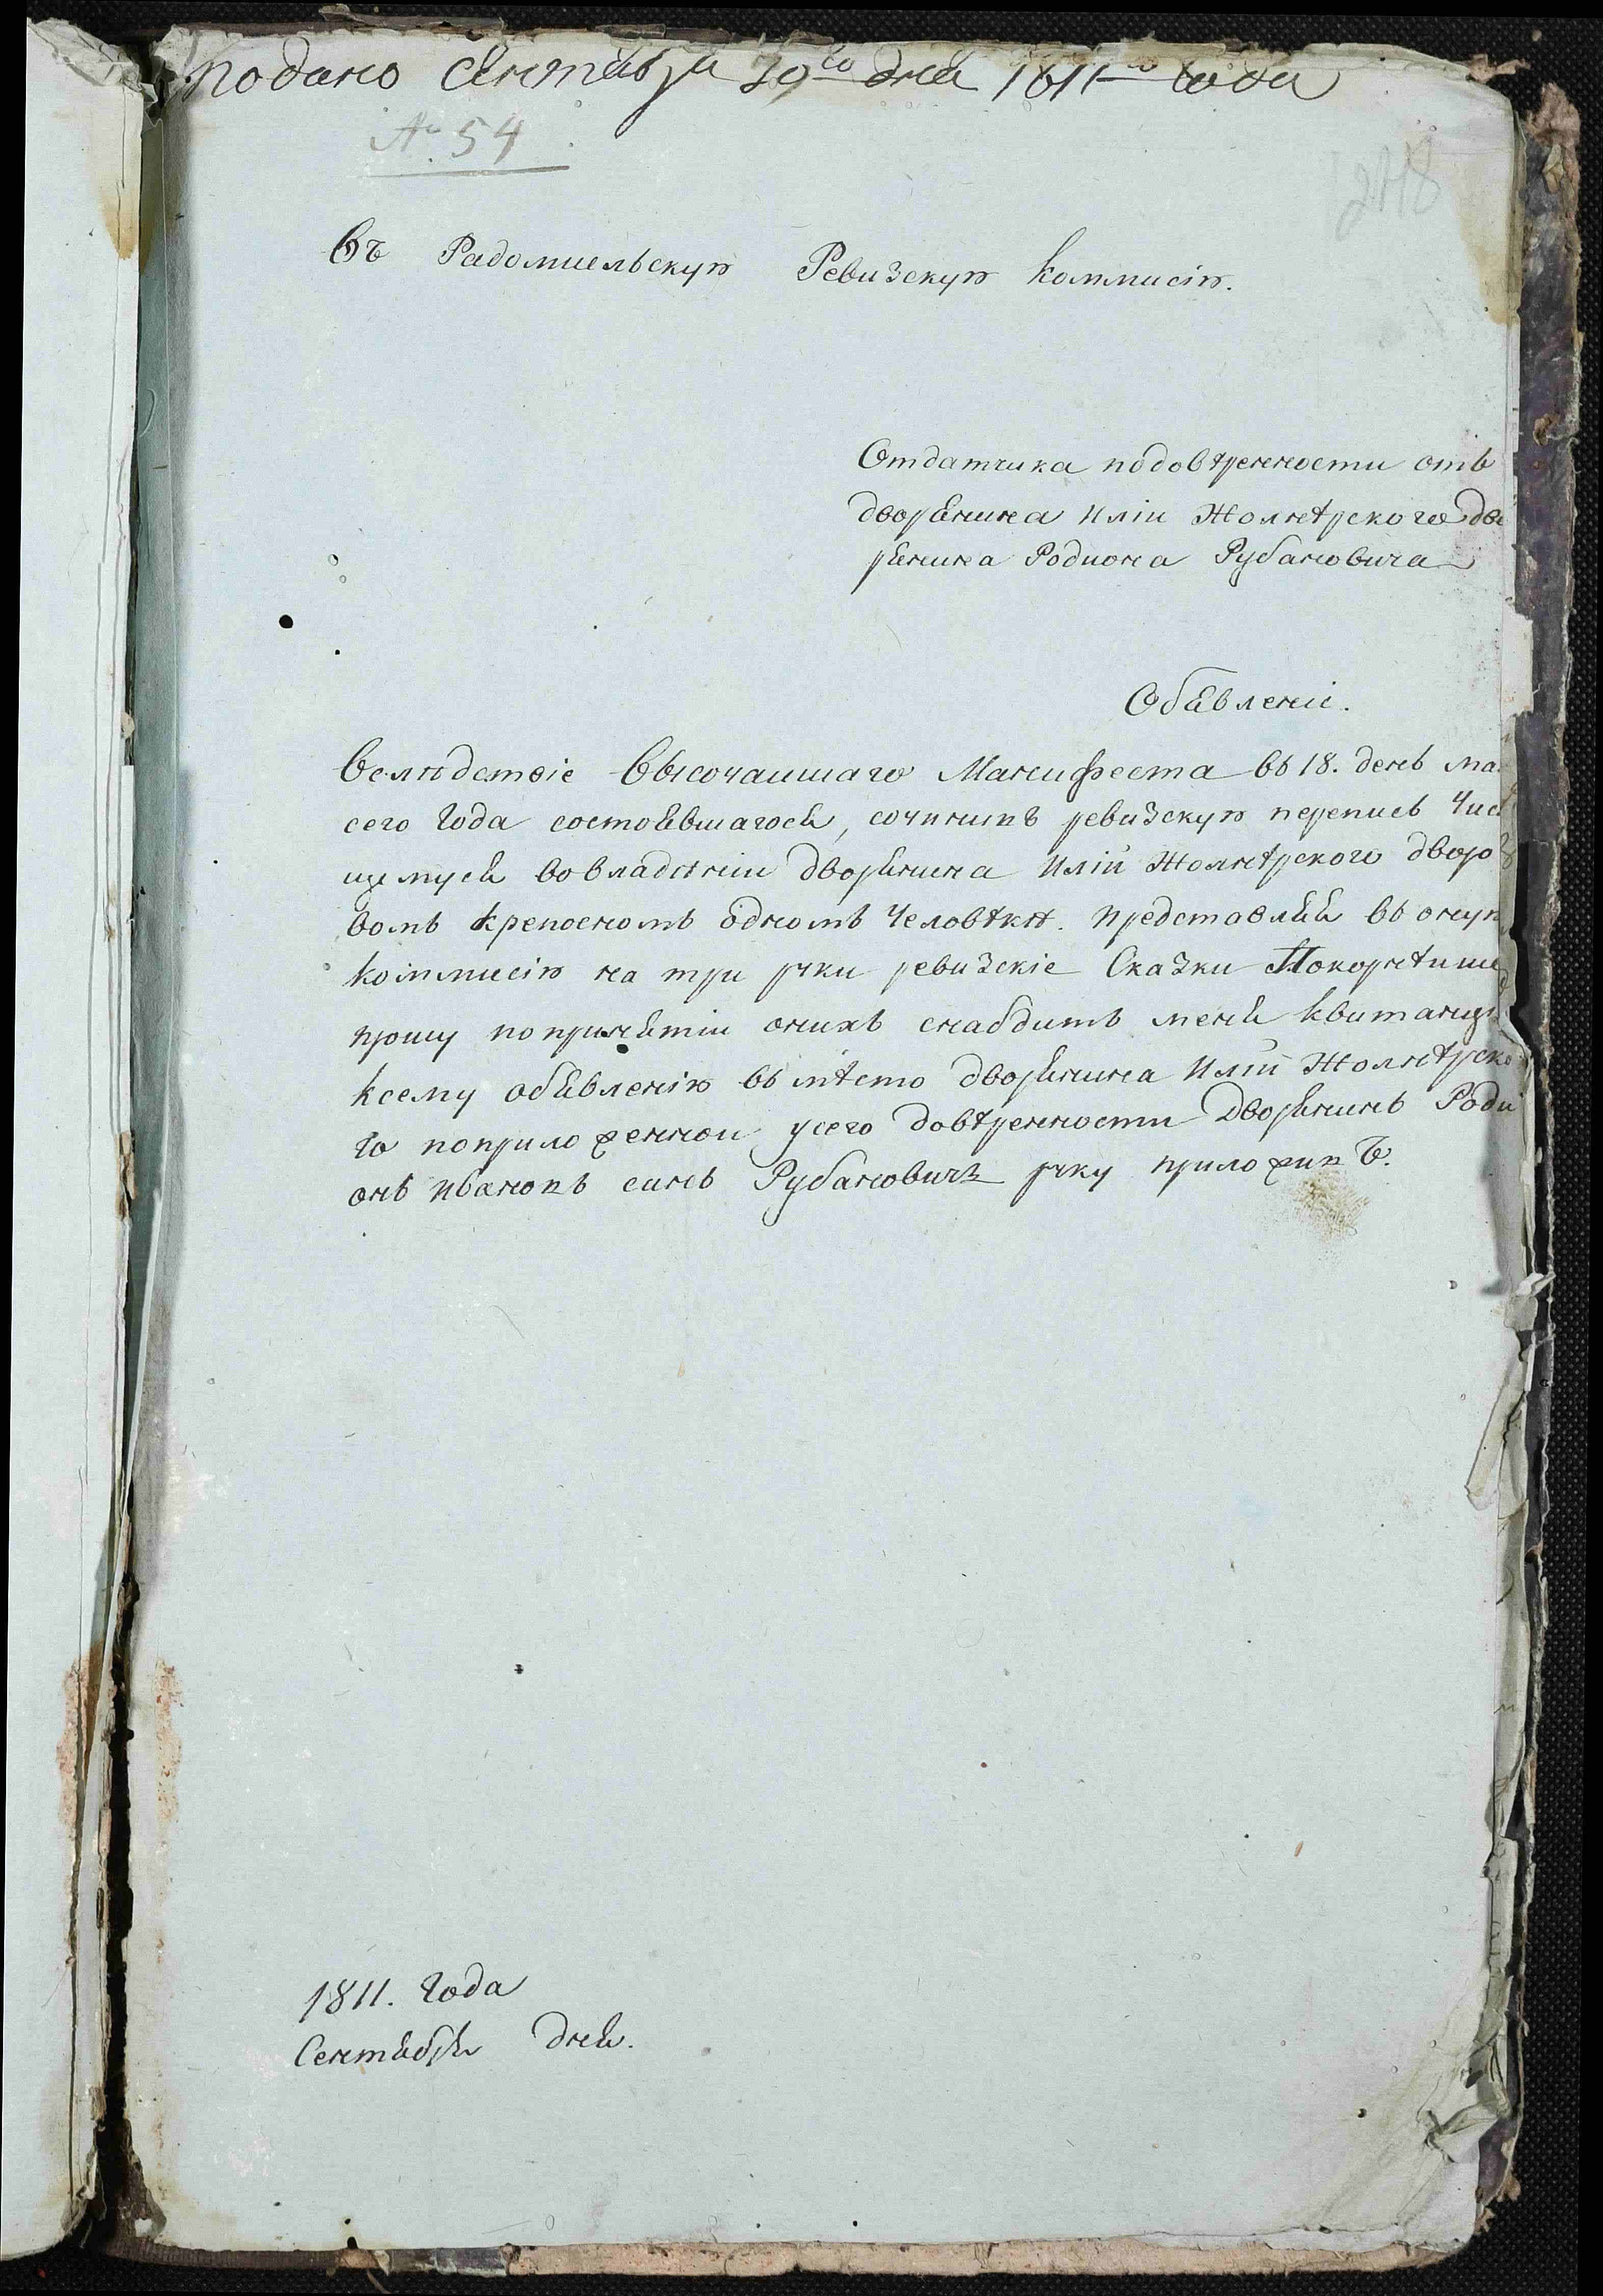 подано сентября 30го дня 1811го года
№ 54
248
Въ Радомисльскую Ревизскую коммисію.
Отдатчика подовѣренности отъ
дворянина Иліи Жолнѣрского дво
рянина Родиона Рубановича
Обявленіи.
Велюдствіе Высочаишаго Манифеста въ 18. день ма
сего года состоявшагося, сочинилъ ревизскую перепись Чис
щемуся вовладѣніи дворянина Иліи Жолнѣрского дворо
вомъ крепосномъ одномъ человѣкѣ. Представляя въ оную
коммисію на три руки ревизскіе Сказки Покорнѣише
прошу попринятіи онихъ снабдить меня квитанци
ксему обявленію въ мѣсто дворянина Иліи Жолнѣрско
го поприложенной усего довѣренности Дворянинъ Роди
онъ Ивановъ синъ Рубановичъ руку приложилъ.
1811. года
Сентября дня.